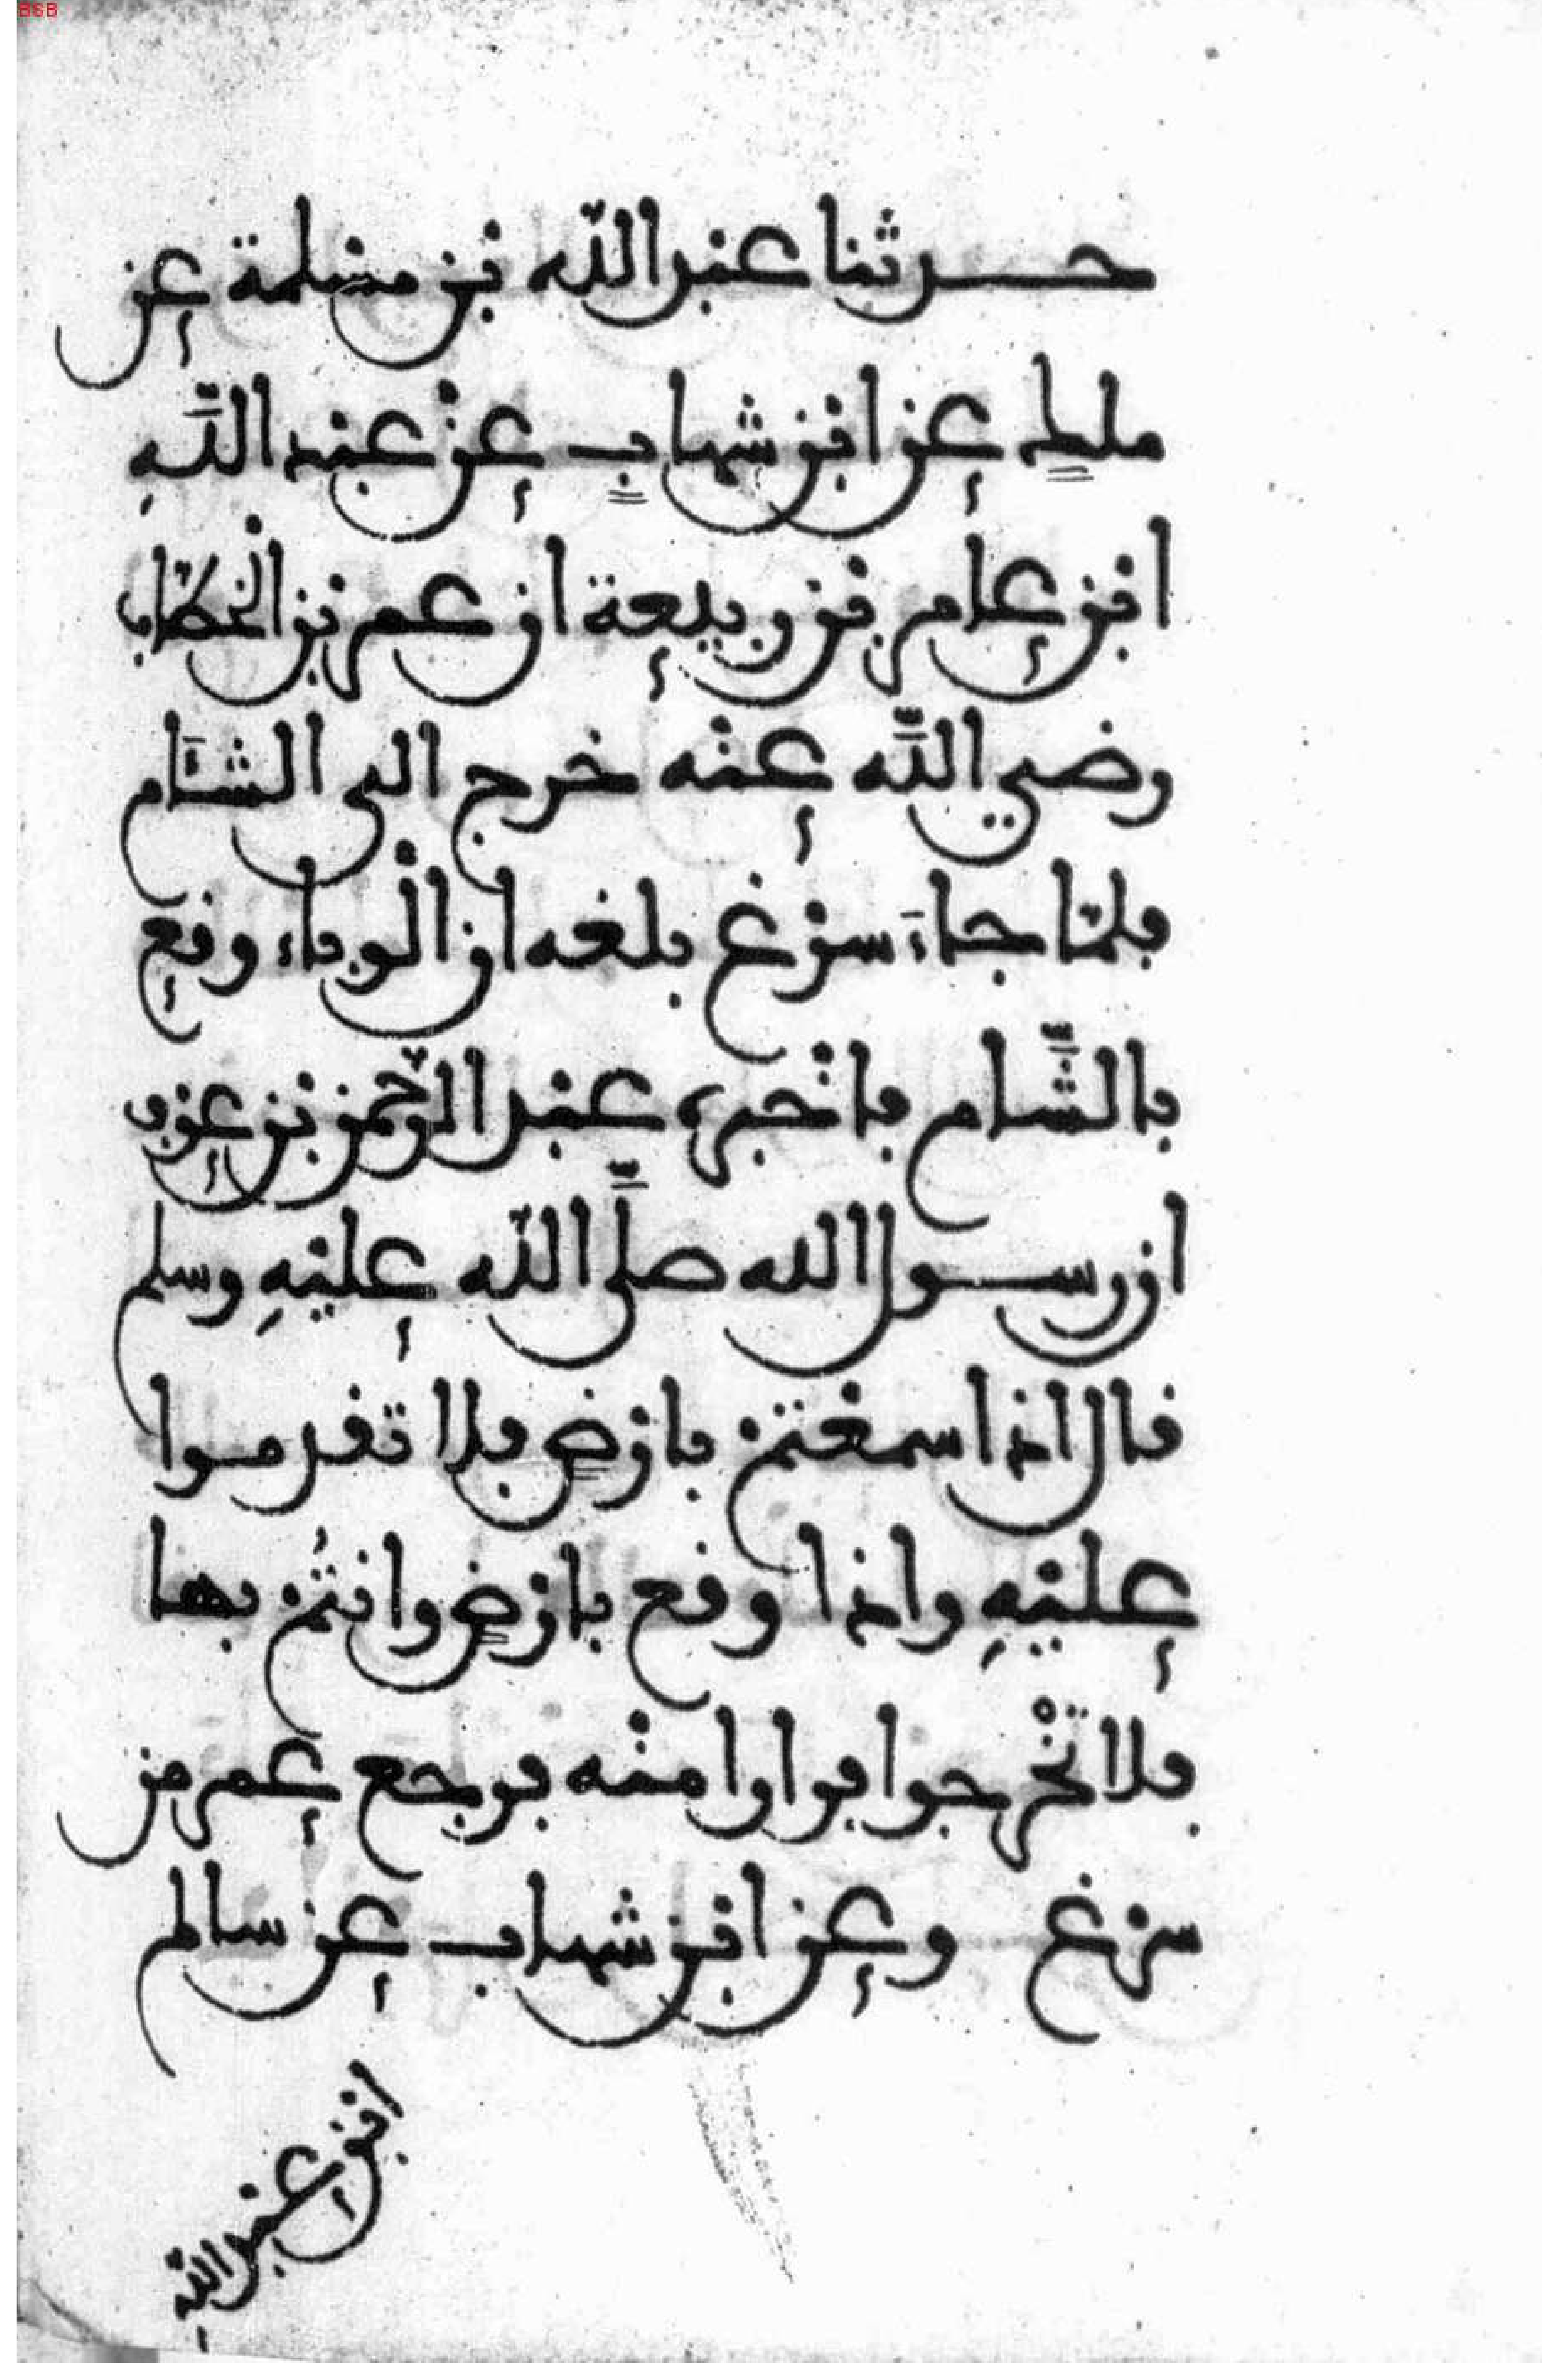 BSB
حدثنا عبد الله بن مسلمة عن
ملك عن ابن شهاب عن عبد الله
ابن عامر بن ربيعة ان عمر بن الخطاب
رضي الله عنه خرج الى الشام
فلمّا جاء سرْغ بلغه ان الْوباء وقع
بالشَّام فاخْبره عبد الرّحمن بن عوف
ان رسول الله صلَّى الله عليْهِ وسلم
قال اذا سمعْتم بارْضٍ فلا تقدموا
عليْهِ واذا وقع بارْضٍ وانتُم بها
فلا تَخْرجوا فرارا منْه فرجع عمر من
سرْغ وعن ابن شهاب عن سالم
ابن عبد الله